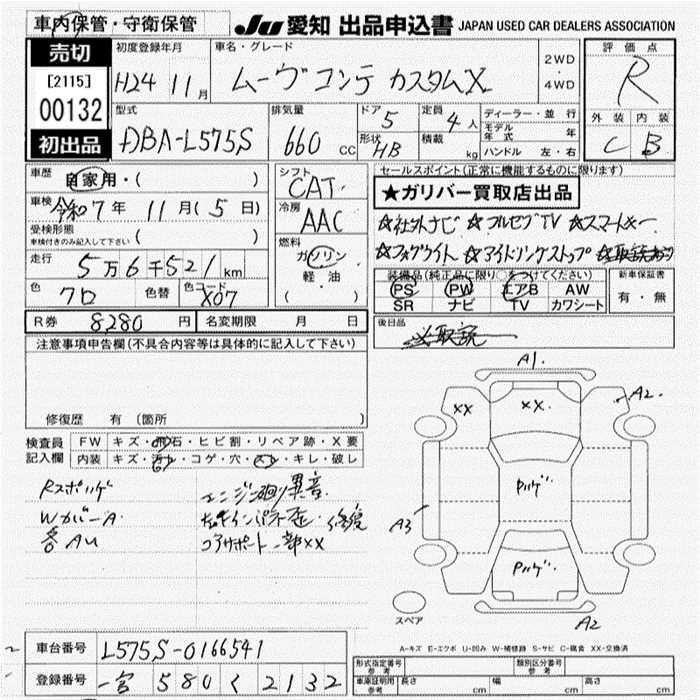 車内保管・守衛保管
JU 愛知 出品申込書 JAPAN USED CAR DEALERS ASSOCIATION
売切
[2115]
00132
初出品
初度登録年月
H24 11月
車名・グレード
ムーヴコンテ カスタムX
2WD
・
4WD
評価点
R
外装 内装
C B
型式
DBA-L575S
排気量
660 cc
ドア
5
形状
HB
定員
4人
積載
kg
ディーラー・並行
モデル年式 年
ハンドル 左・右
車歴
自家用・( )
車検
令和7年 11月(5日)
受検形態
車検付きのみ記入して下さい ( )
走行
5万6千521km
色
クロ
色替
色コード
X07
シフト
CAT
冷房
AAC
燃料
ガソリン
軽油
( )
セールスポイント(正常に機能するものに限ります)
★ガリバー買取店出品
☆社外ナビ ☆フルセグTV ☆スマートキー
☆フォグライト ☆アイドリングストップ
装備品(純正品に限り○をつけてください)
PS PW エアB AW
SR ナビ TV カワシート
新車保証書
有・無
R券 8280円 名変期限 月 日
後日品
取説
注意事項申告欄(不具合内容等は具体的に記入して下さい)
修復歴 有 〔箇所 〕
検査員
記入欄
FW キズ・飛石・ヒビ割・リペア跡・X要
内装 キズ・汚れ・コゲ・穴・スレ・キレ・破レ
Wカバー A
各AU
エンジン廻り異音
コアサポート一部XX
A1
A2
XX
XX
A3
A2
スペア
A-キズ E-エクボ U-凹み W-補修跡 S-サビ C-腐食 XX-交換済
車台番号 L575S-0166541
登録番号 一宮 580 く 2132
形式指定番号
参考
類別区分番号
参考
車庫証明用
参考
長さ cm 幅 cm 高さ cm